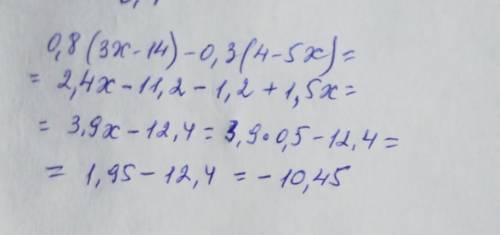 0,8(3x-14)-0,3(4-5x)=
= 2,4x-11,2-1,2+1,5x=
= 3,9x-12,4=3,9·0,5-12,4=
= 1,95-12,4=-10,45